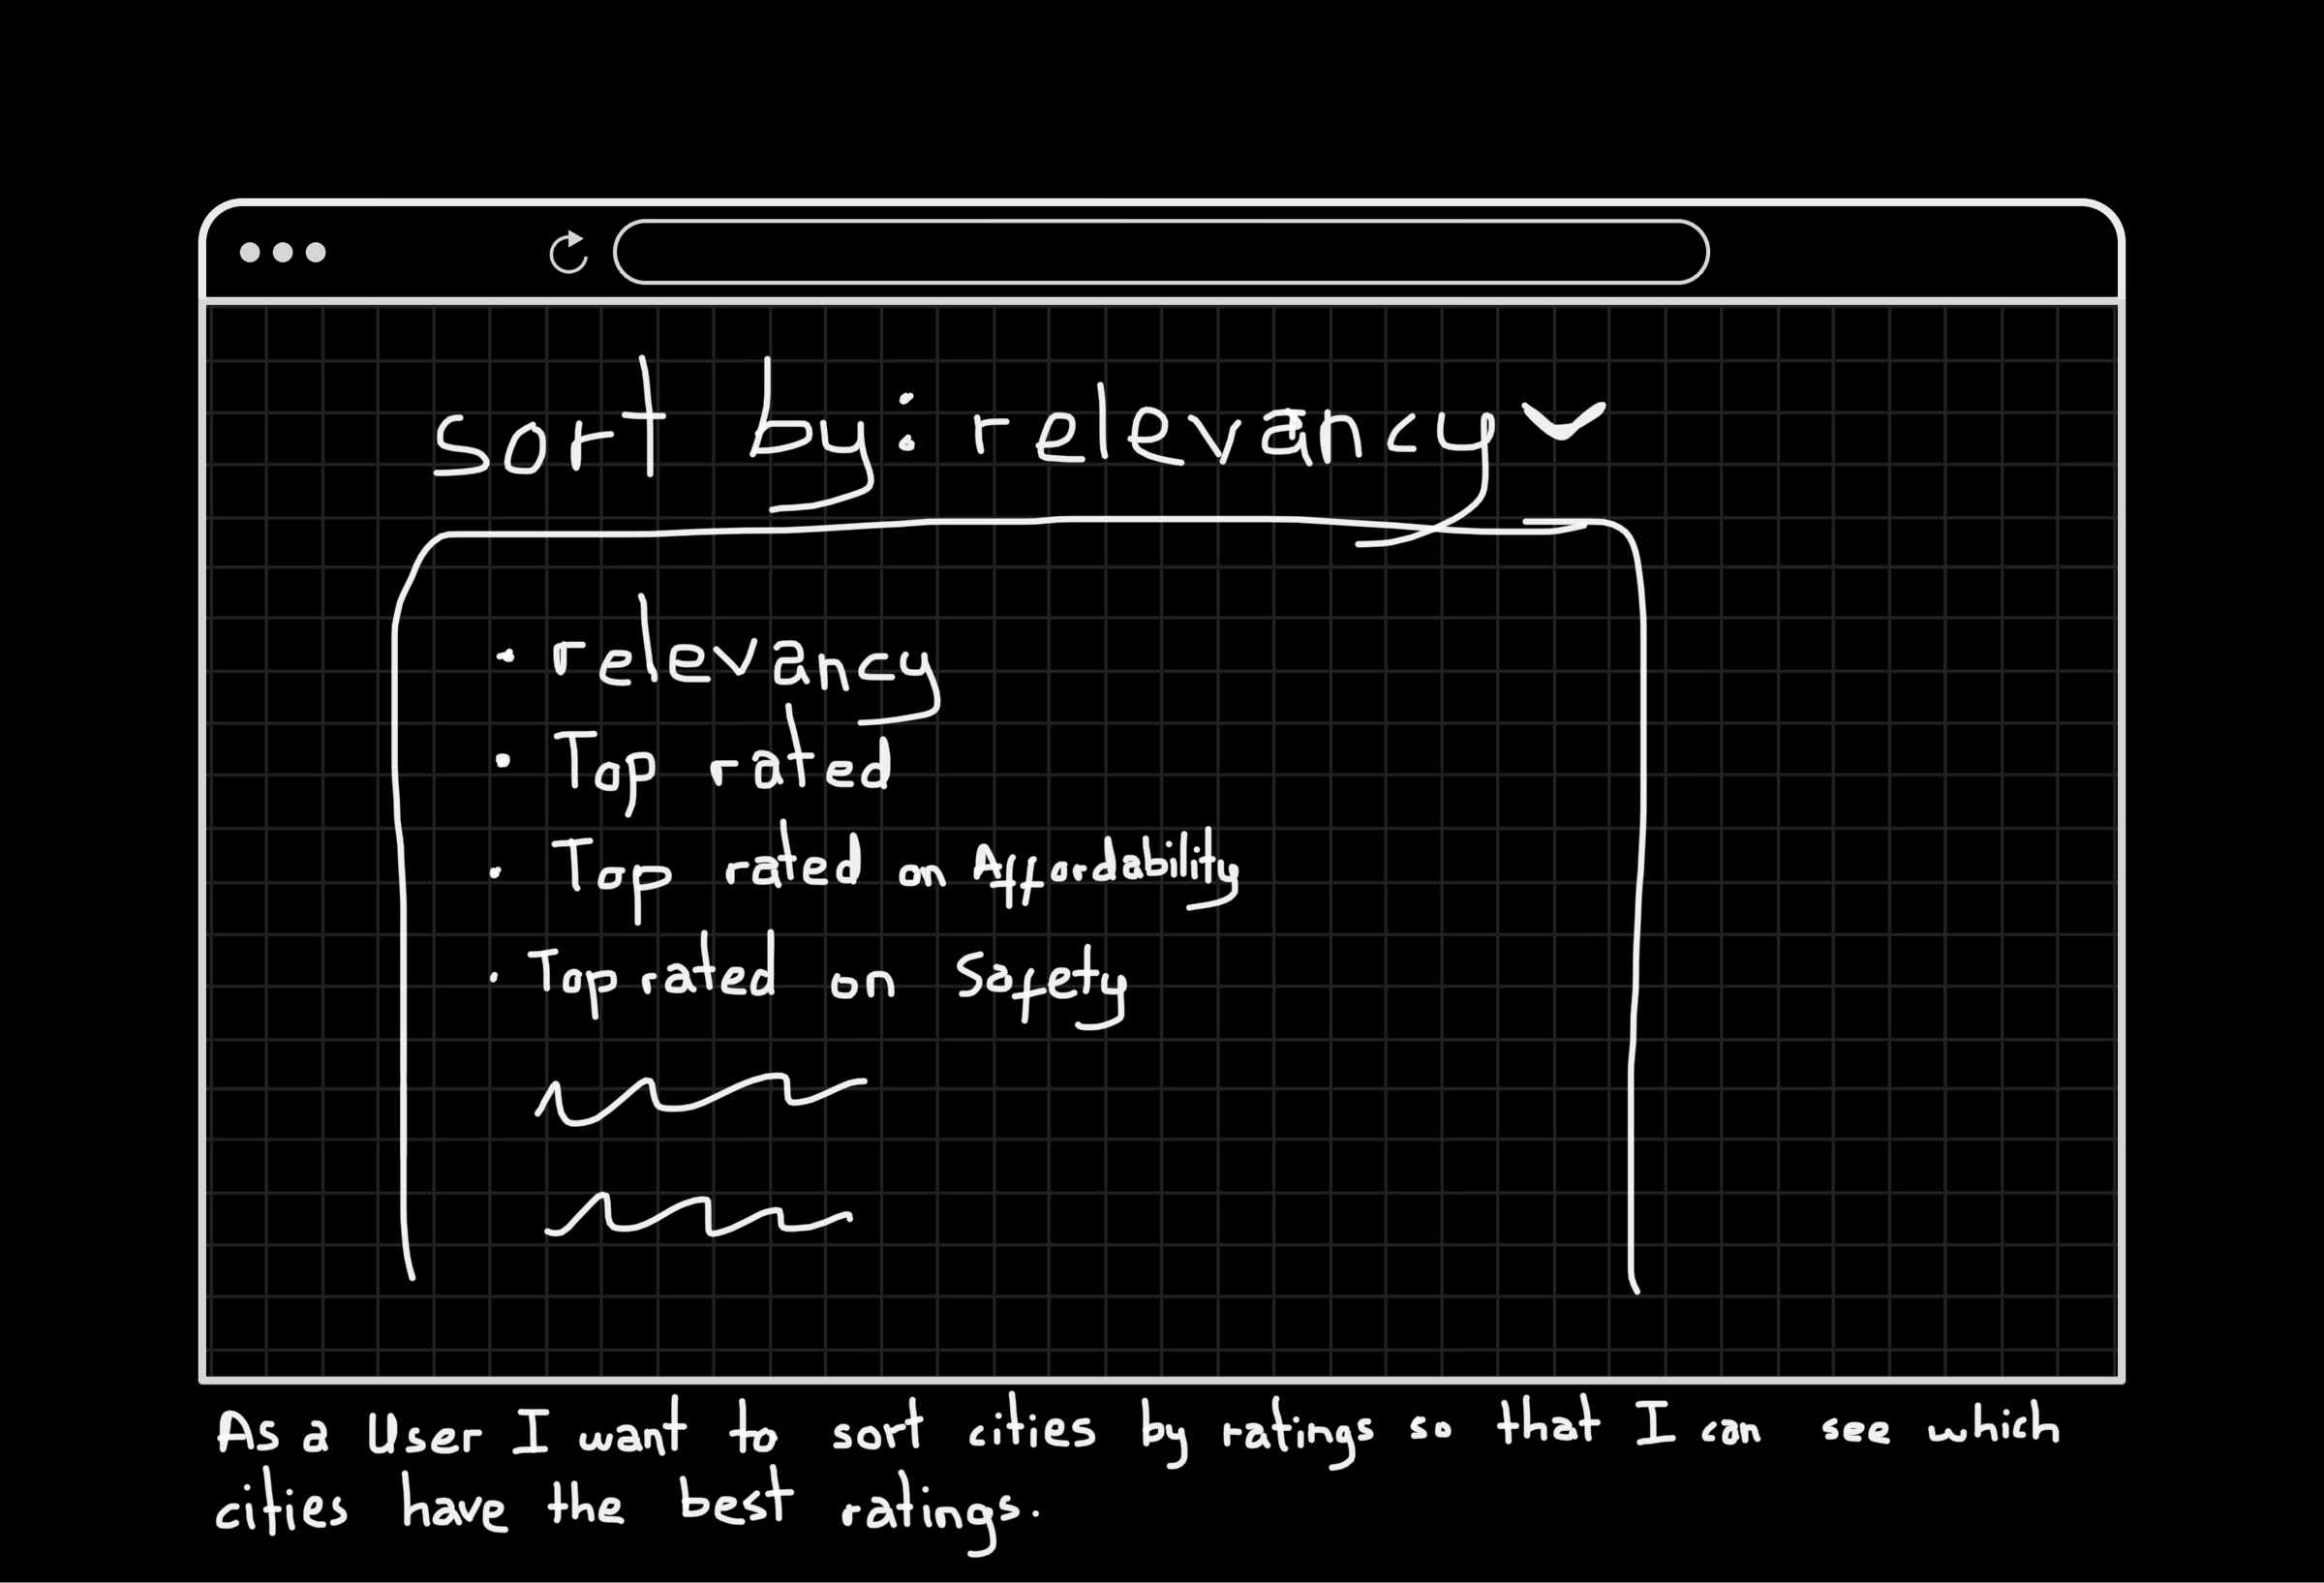 sort by: relevancy
• relevancy
• Top rated
• Top rated on Affordability
• Top rated on Safety
As a User I want to sort cities by ratings so that I can see which
cities have the best ratings.